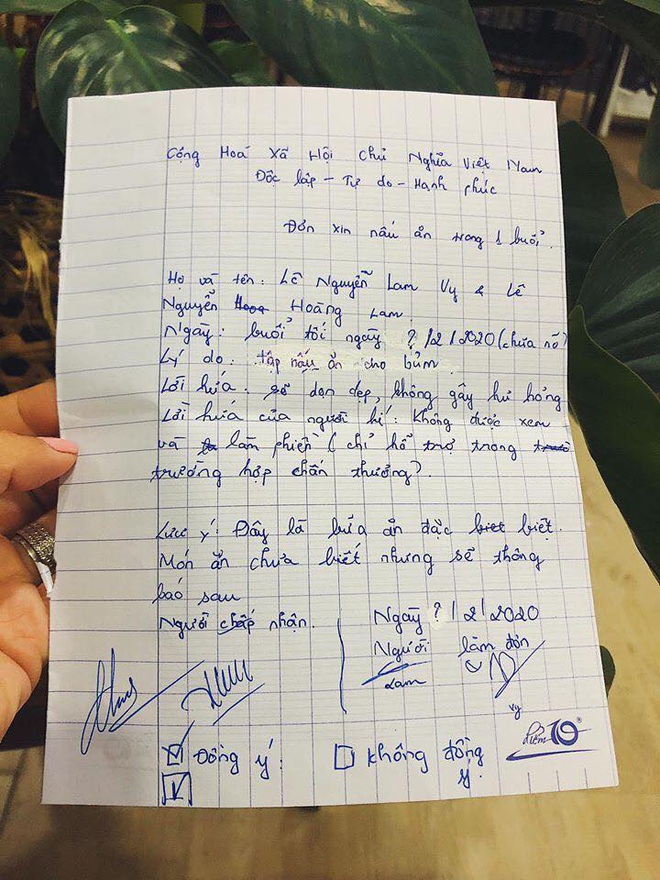 Cộng Hoá Xã Hội Chủ Nghĩa Việt Nam
Độc lập - Tự do - Hạnh phúc
Đơn xin nấu ăn trong 1 buổi.
Họ và tên: Lê Nguyễn Lam Vy & Lê
Nguyễn Hoàng Lam.
Ngày: buổi tối ngày ?/2/2020 (chưa rõ)
Lý do: tập nấu ăn cho bủm.
Lời hứa: sẽ dọn dẹp, không gây hư hỏng
Lời hứa của người ký: không được xem
và làm phiền (chỉ hổ trợ trong
trường hợp chấn thương).
Lưu ý: Đây là bữa ăn đặc biệt.
Món ăn chưa biết nhưng sẽ thông
báo sau
Người chấp nhận.
Ngày ?/2/2020
Người làm đơn
Lam
Vy
Đồng ý.
Không đồng
ý.
điểm 10